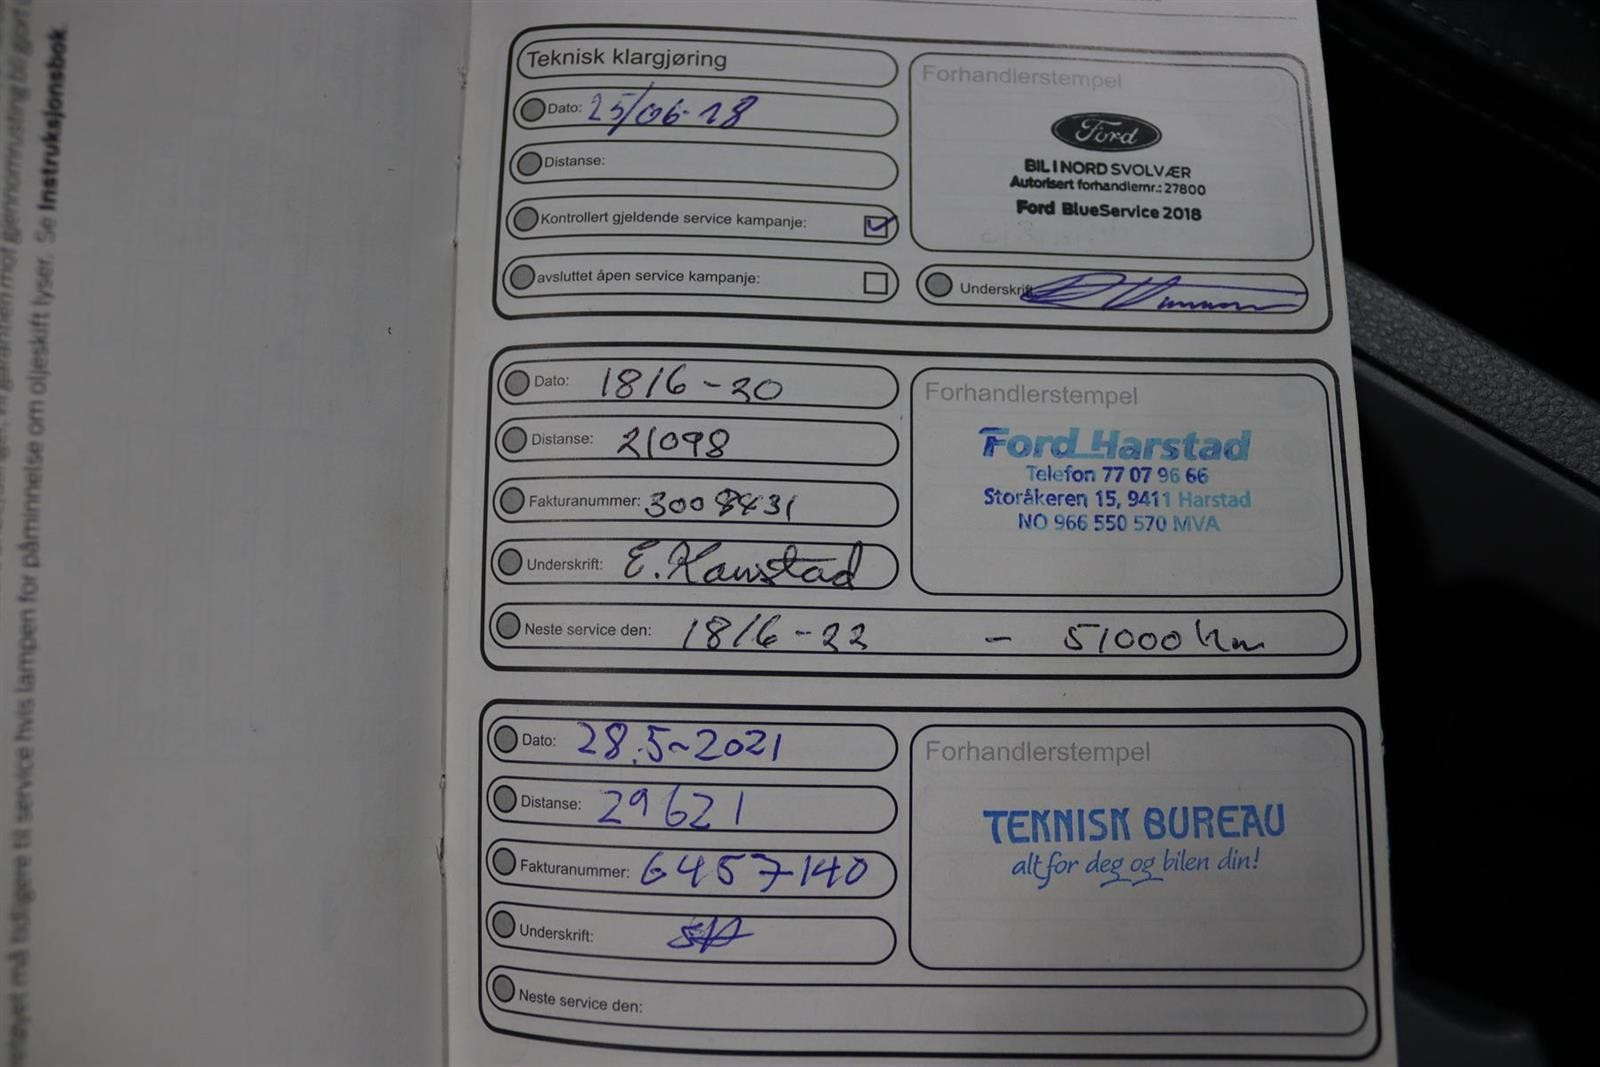 Teknisk klargjøring
Dato: 25/06-18
Distanse:
Kontrollert gjeldende service kampanje:
avsluttet åpen service kampanje:
Forhandlerstempel
Ford
BIL I NORD SVOLVÆR
Autorisert forhandlernr.: 27800
Ford BlueService 2018
Underskrift
Dato: 18/6-20
Distanse: 21098
Fakturanummer: 3008431
Underskrift: E. Kanstad
Neste service den: 18/6-22 - 51000 km
Forhandlerstempel
Ford Harstad
Telefon 77 07 96 66
Storåkeren 15, 9411 Harstad
NO 966 550 570 MVA
Dato: 28.5-2021
Distanse: 29621
Fakturanummer: 6457140
Underskrift:
Neste service den:
Forhandlerstempel
TEKNISK BUREAU
alt for deg og bilen din!
tøyet må tidligere til service hvis lampen for påminnelse om oljeskift lyser. Se Instruksjonsbok